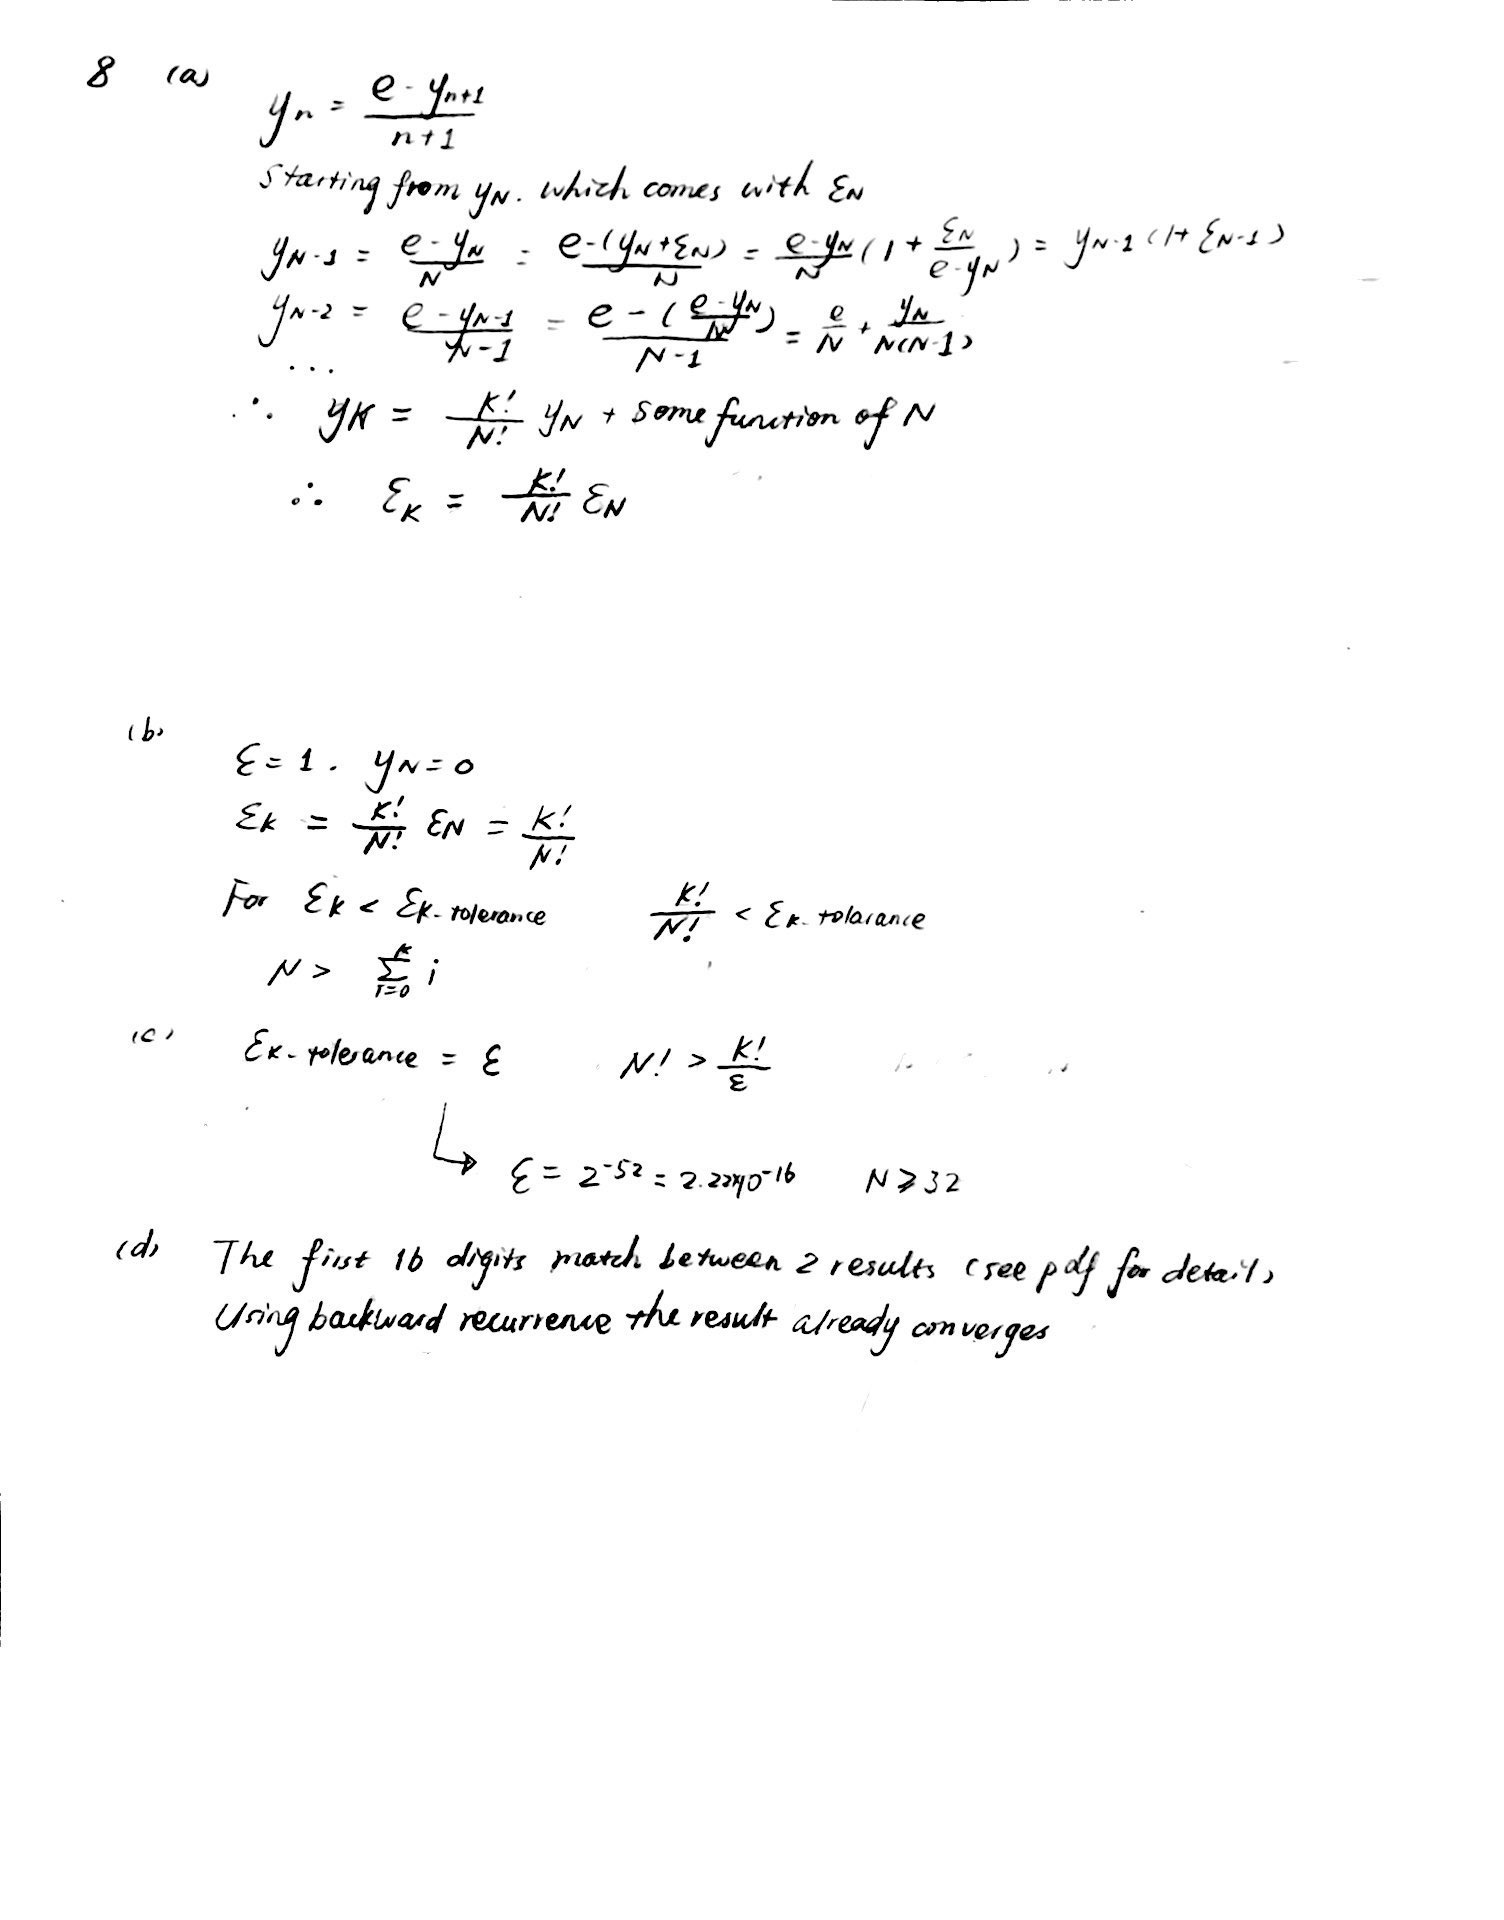 8 (a) yn = (e - yn+1)/(n+1)
Starting from yN. which comes with εN
yN-1 = (e - yN)/N = (e-(yN+εN))/N = (e-yN)/N (1 + εN/(e-yN)) = yN-1 (1+ εN-1)
yN-2 = (e - yN-1)/(N-1) = (e - ((e-yN)/N))/(N-1) = e/N + yN/(N(N-1))
...
∴ yK = K!/N! yN + Some function of N
∴ εK = K!/N! εN
(b)
ε = 1. yN = 0
εK = K!/N! εN = K!/N!
For εK < εK-tolerance K!/N! < εK-tolarance
N > Σ_{i=0}^{K} i
(c) εK-tolerance = ε N! > K!/ε
↳ ε = 2^-52 = 2.22×10^-16 N ⩾ 32
(d) The first 16 digits match between 2 results (see pdf for detail)
Using backward recurrence the result already converges